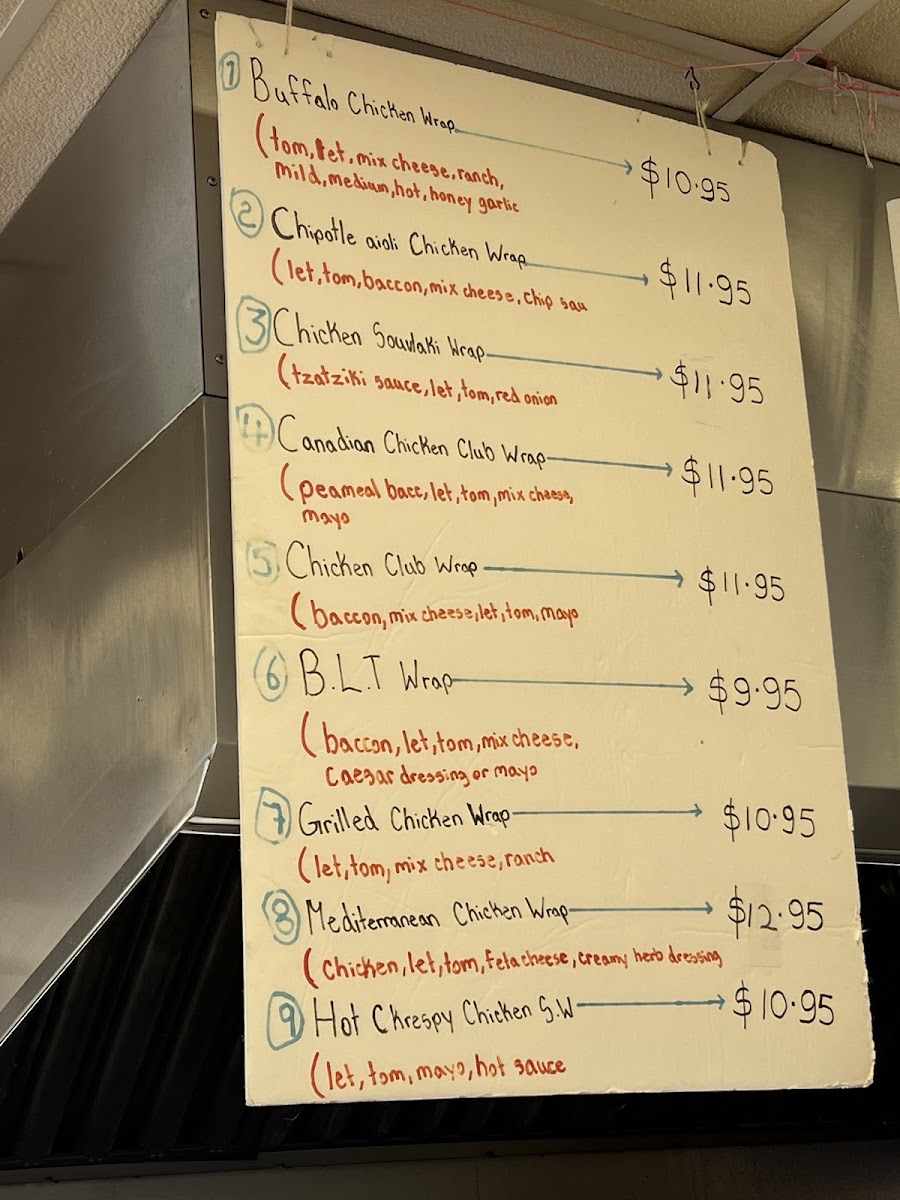 1 Buffalo Chicken Wrap $10.95
(tom, let, mix cheese, ranch,
mild, medium, hot, honey garlic
2 Chipotle aioli Chicken Wrap $11.95
(let, tom, baccon, mix cheese, chip sau
3 Chicken Souvlaki Wrap $11.95
(tzatziki sauce, let, tom, red onion
4 Canadian Chicken Club Wrap $11.95
(peameal bacc, let, tom, mix cheese,
mayo
5 Chicken Club Wrap $11.95
(baccon, mix cheese, let, tom, mayo
6 B.L.T Wrap $9.95
(baccon, let, tom, mix cheese,
caesar dressing or mayo
7 Grilled Chicken Wrap $10.95
(let, tom, mix cheese, ranch
8 Mediterranean Chicken Wrap $12.95
(chicken, let, tom, feta cheese, creamy herb dressing
9 Hot Ckrespy Chicken S.W $10.95
(let, tom, mayo, hot sauce